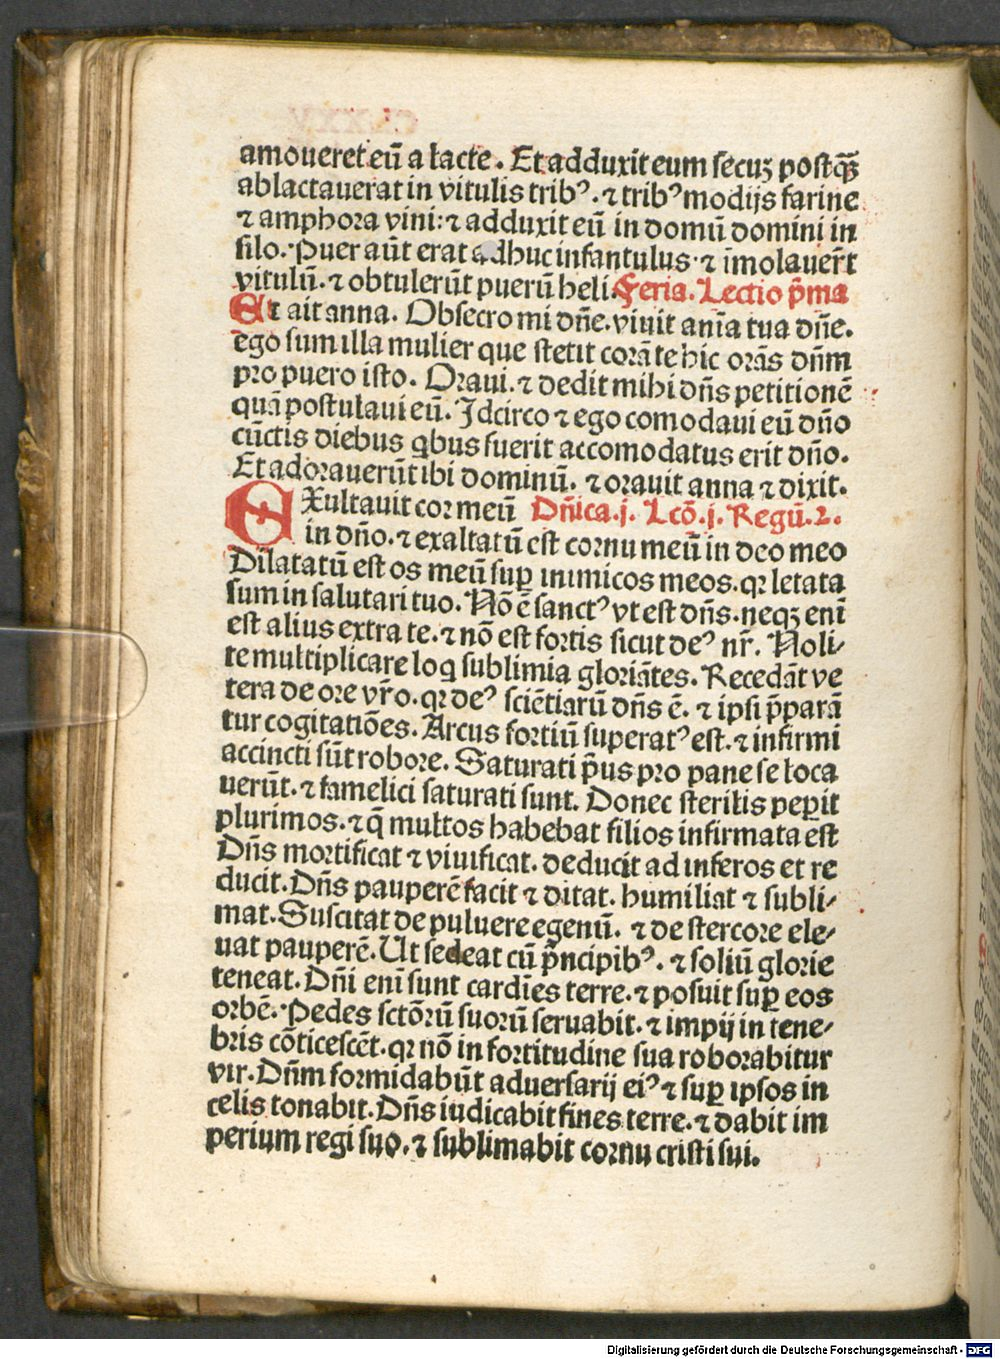 amoueret eū a lacte. Et adduxit eum secuꝫ postq̄ꝫ
ablactauerat in vitulis tribꝰ. ⁊ tribꝰ modijs farine
⁊ amphora vini: ⁊ adduxit eū in domū domini in
silo. Puer aūt erat adhuc infantulus. ⁊ imolauer̄t
vitulū. ⁊ obtulerūt puerū heli. Feria. Lectio p̄ma
Et ait anna. Obsecro mi dn̄e. viuit anīa tua dn̄e.
ego sum illa mulier que stetit corā te hic orās dn̄m
pro puero isto. Oraui. ⁊ dedit mihi dn̄s petitionē
quā postulaui eū. Idcirco ⁊ ego comodaui eū dn̄o
cūctis diebus qͥbus fuerit accomodatus erit dn̄o.
Et adorauerūt ibi dominū. ⁊ orauit anna ⁊ dixit.
EXultauit cor meū Dn̄ica. j. Lcō. j. Regū. 2.
in dn̄o. ⁊ exaltatū est cornu meū in deo meo
Dilatatū est os meū suꝑ inimicos meos. qꝛ letata
sum in salutari tuo. Nō ē sanctꝰ vt est dn̄s. neqꝫ enī
est alius extra te. ⁊ nō est fortis sicut deꝰ nr̄. Noli-
te multiplicare loqͥ sublimia gloriātes. Recedāt ve
tera de ore vr̄o. qꝛ deꝰ sciētiarū dn̄s ē. ⁊ ipsi p̄parā
tur cogitatiōes. Arcus fortiū superatꝰ est. ⁊ infirmi
accincti sūt robore. Saturati p̄us pro pane se loca
uerūt. ⁊ famelici saturati sunt. Donec sterilis peꝑit
plurimos. ⁊ q̄ multos habebat filios infirmata est
Dn̄s mortificat ⁊ viuificat. deducit ad inferos et re
ducit. Dn̄s pauperē facit ⁊ ditat. humiliat ⁊ subli-
mat. Suscitat de puluere egenū. ⁊ de stercore ele-
uat pauperē. Ut sedeat cū p̄ncipibꝰ. ⁊ soliū glorie
teneat. Dn̄i enī sunt cardīes terre. ⁊ posuit suꝑ eos
orbē. Pedes sctōrū suorū seruabit. ⁊ impij in tene-
bris cōticescēt. qꝛ nō in fortitudine sua roborabitur
vir. Dn̄m formidabūt aduersarij eiꝰ ⁊ suꝑ ipsos in
celis tonabit. Dn̄s iudicabit fines terre. ⁊ dabit im
perium regi suo. ⁊ sublimabit cornu cristi sui.
Digitalisierung gefördert durch die Deutsche Forschungsgemeinschaft - DFG